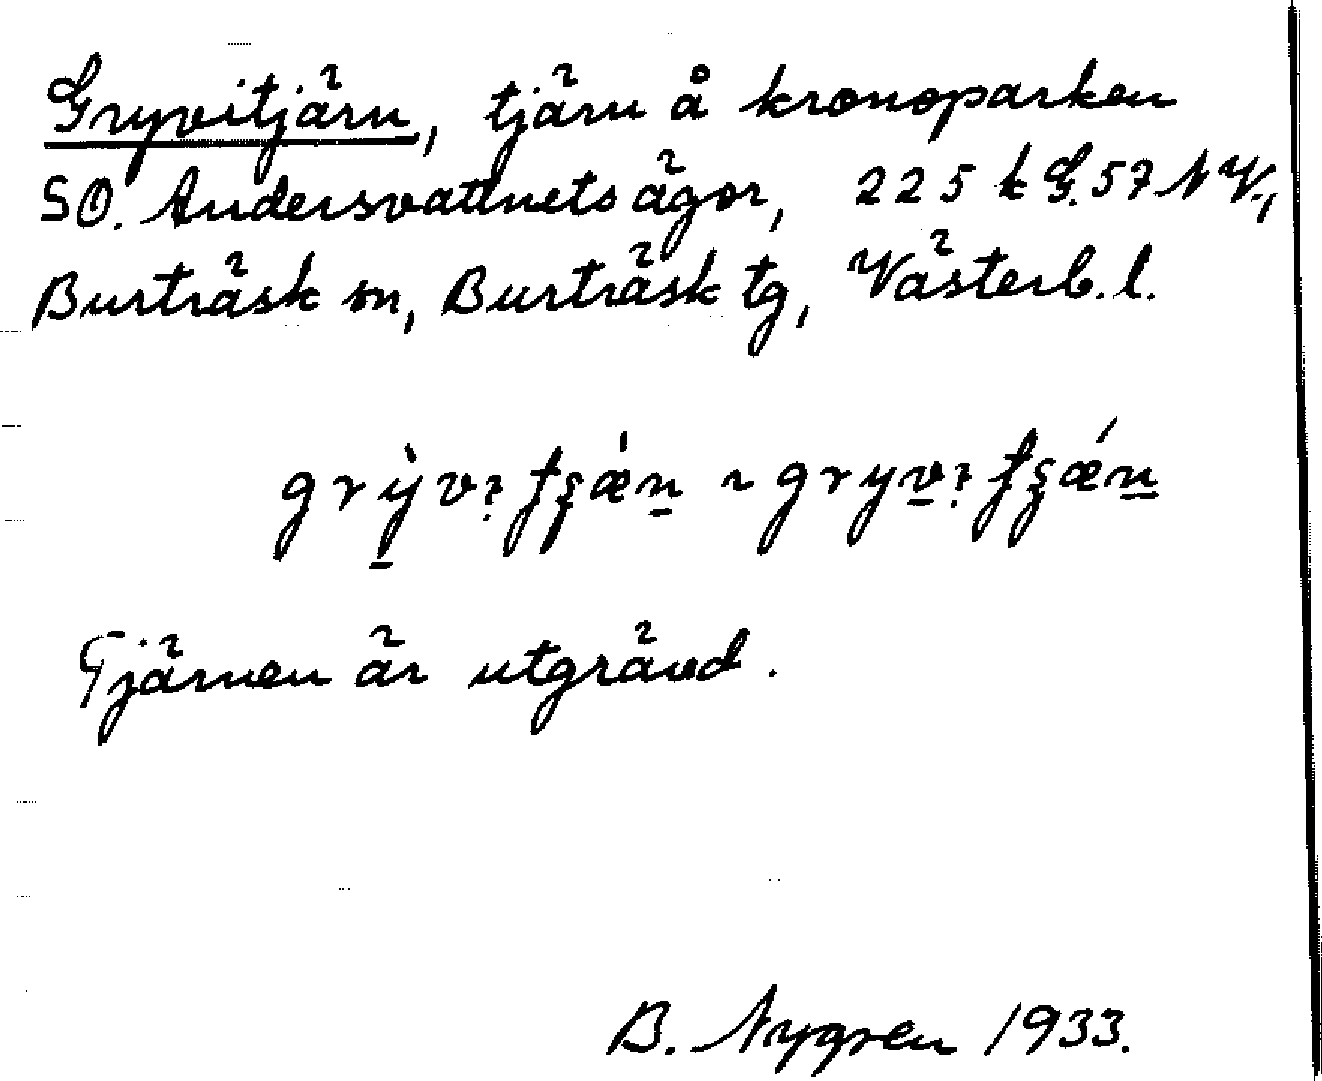 Gryvitjärn, tjärn å kronoparken
SO. Andersvattnets ägor, 225 k G. 57 N V.,
Burträsk sn, Burträsk tg, Västerb. l.
Tjärnen är utgrävd.
B. Nygren 1933.